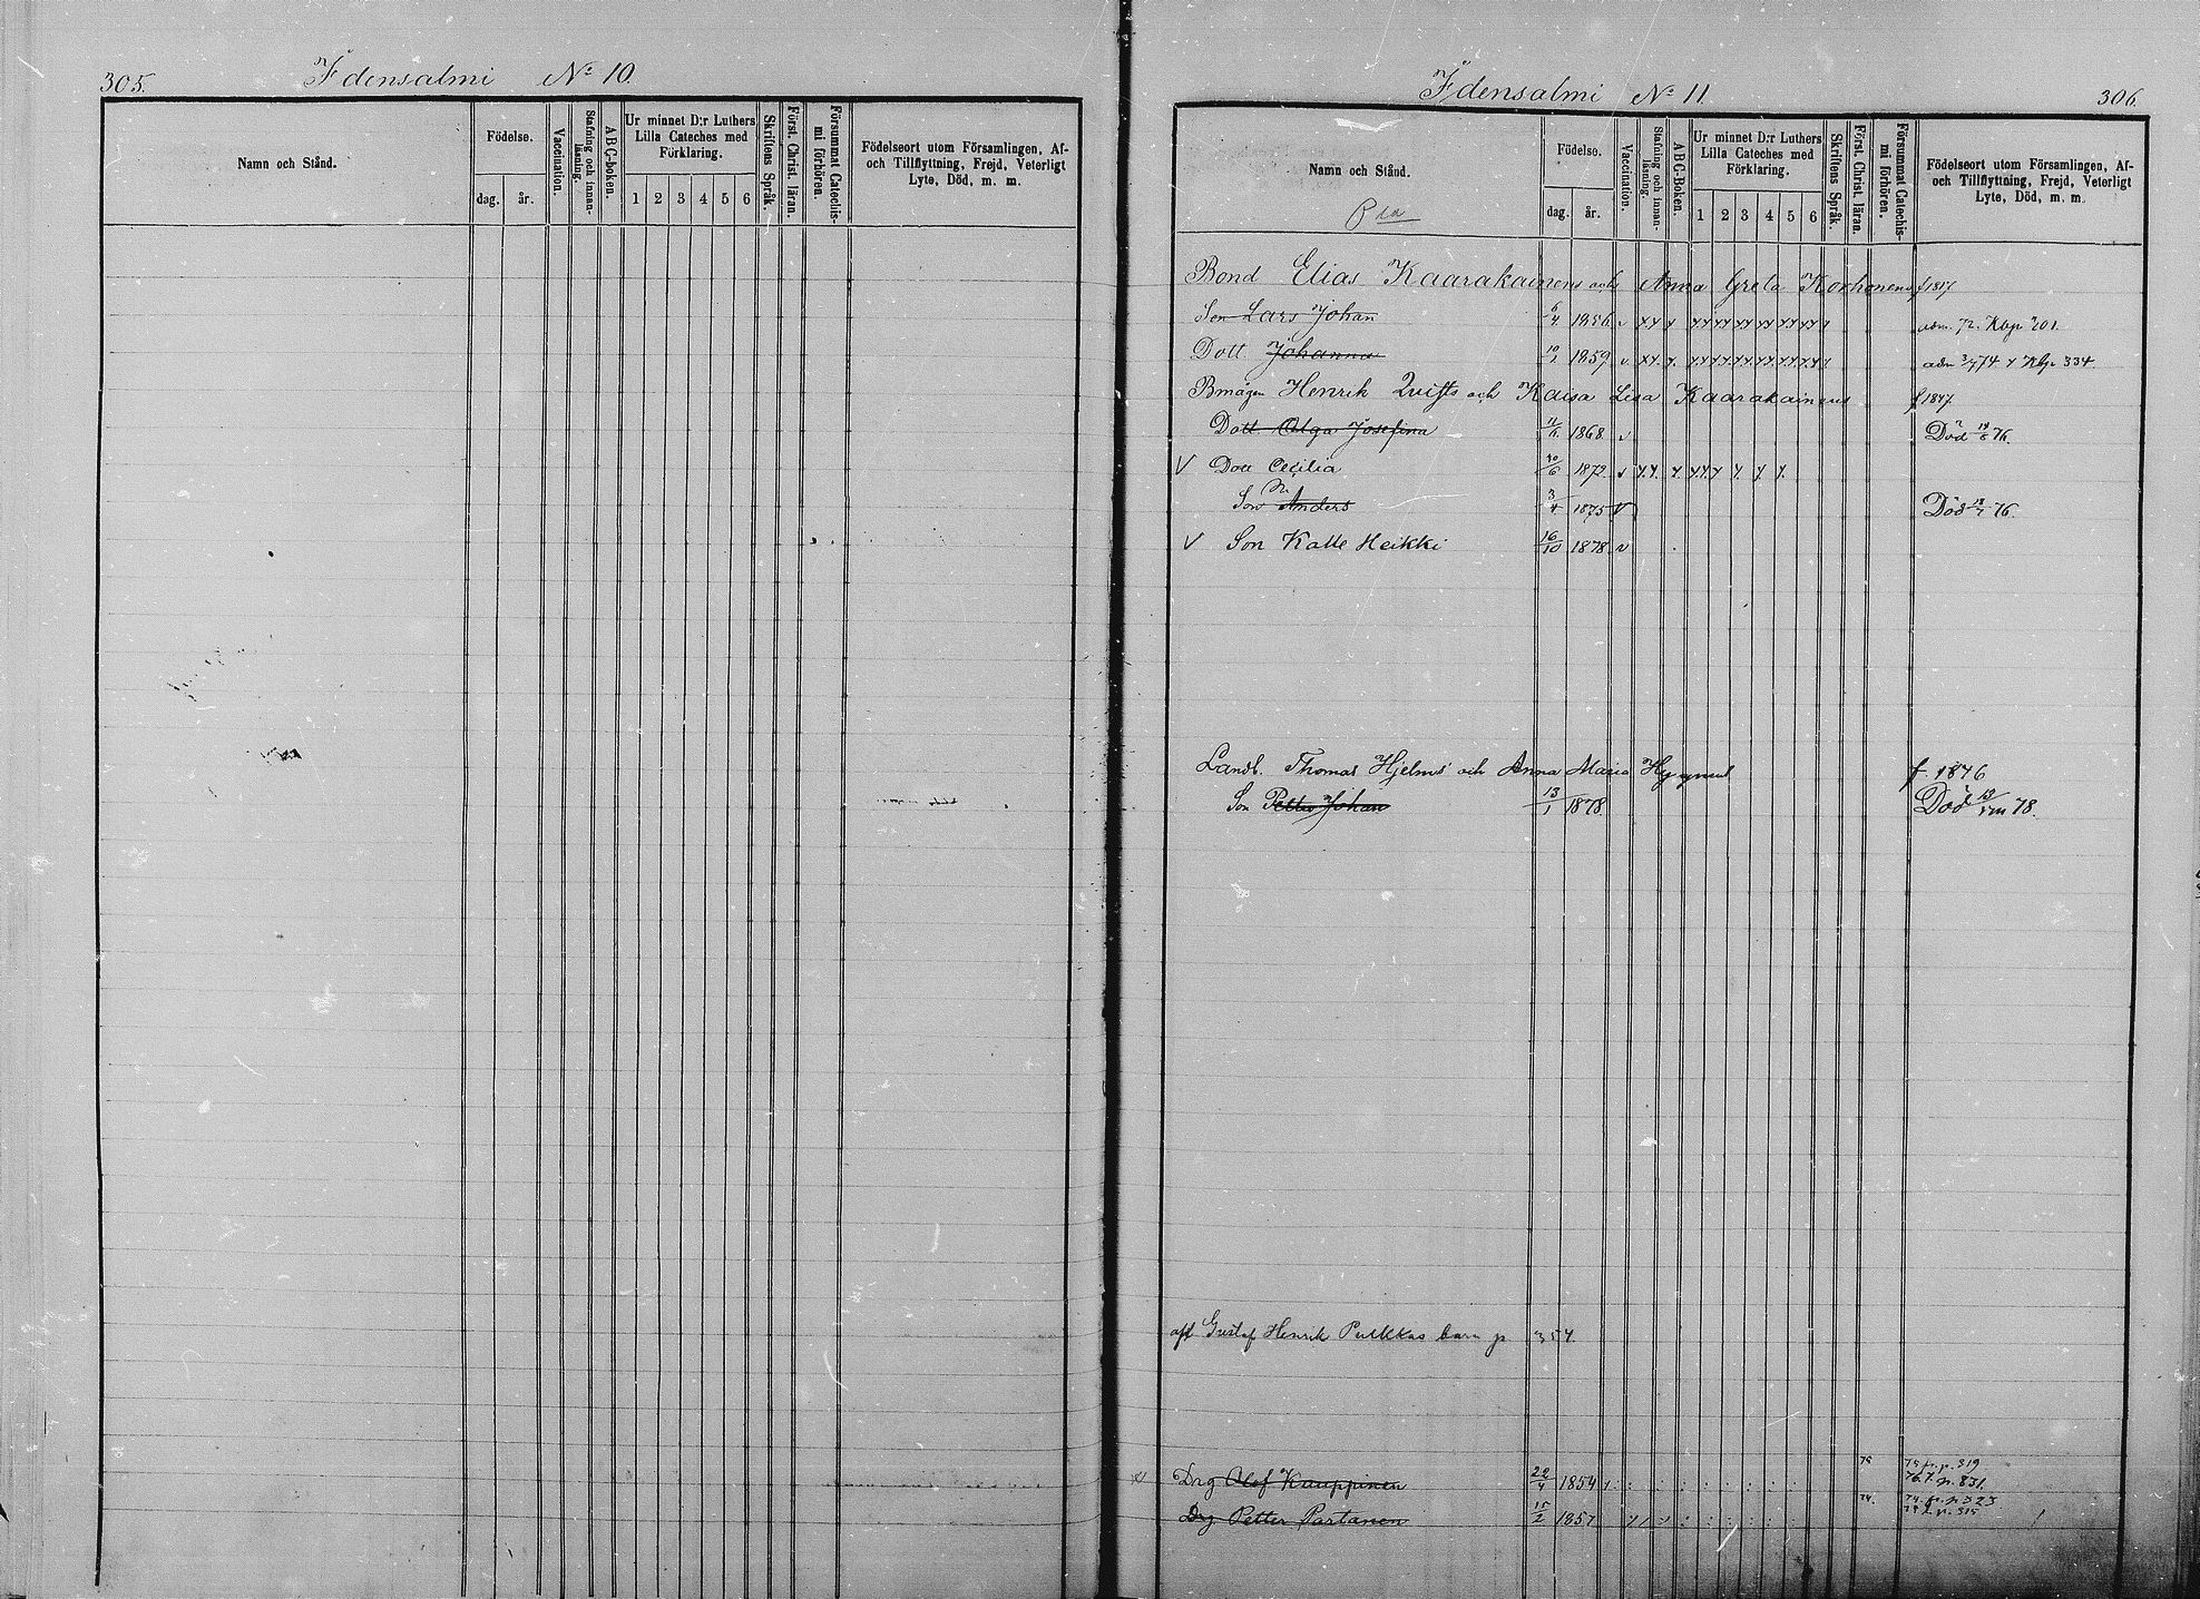 305.
Idensalmi No 10.
Namn och Stånd.
Födelse.
dag.
år.
Vaccination.
Stafning och innan-
läsning.
ABC-boken.
Ur minnet D:r Luthers
Lilla Cateches med
Förklaring.
1 2 3 4 5 6
Skriftens Språk.
Först. Christ. läran.
Försummat Catechis-
mi förhören.
Födelseort utom Församlingen, Af-
och Tillflyttning, Frejd, Veterligt
Lyte, Död, m. m.
Idensalmi No 11.
306.
Namn och Stånd.
Födelse.
dag.
år.
Vaccination.
Stafning och innan-
läsning.
ABC-Boken.
Ur minnet D:r Luthers
Lilla Cateches med
Förklaring.
1 2 3 4 5 6
Skriftens Språk.
Först. Christ. läran.
Försummat Catechis-
mi förhören.
Födelseort utom Församlingen, Af-
och Tillflyttning, Frejd, Veterligt
Lyte, Död, m. m.
Bond Elias Kaarakainens och Anna Greta Korhonens f 1817
Son Lars Johan 6/4 1856 adm. 72. Kbp 201.
Dott. Johanna 10/1 1859 adm 3/7 74 Kbp 334.
Bmågen Henrik Qvists och Kaisa Lisa Kaarakainens f 1847.
Dott. Olga Josefina 11/11 1868 Död 19/6 76.
V Dott Cecilia 20/6 1872
Son N. Anders 3/4 1875 Död 76.
V Son Kalle Heikki 16/10 1878
Landb. Thomas Hjelms och Anna Maria Hyvynens f. 1846
Son Petter Johan 13/1 1878. Död 13/VIII 78.
afl Gustaf Henrik Pulkkas barn p 354.
Drg Olof Kauppinen 22/4 1854 75 75 fr. p. 319
76. t. p. 831.
Drg Petter Partanen 15/2 1857 74. 74. fr. p 323